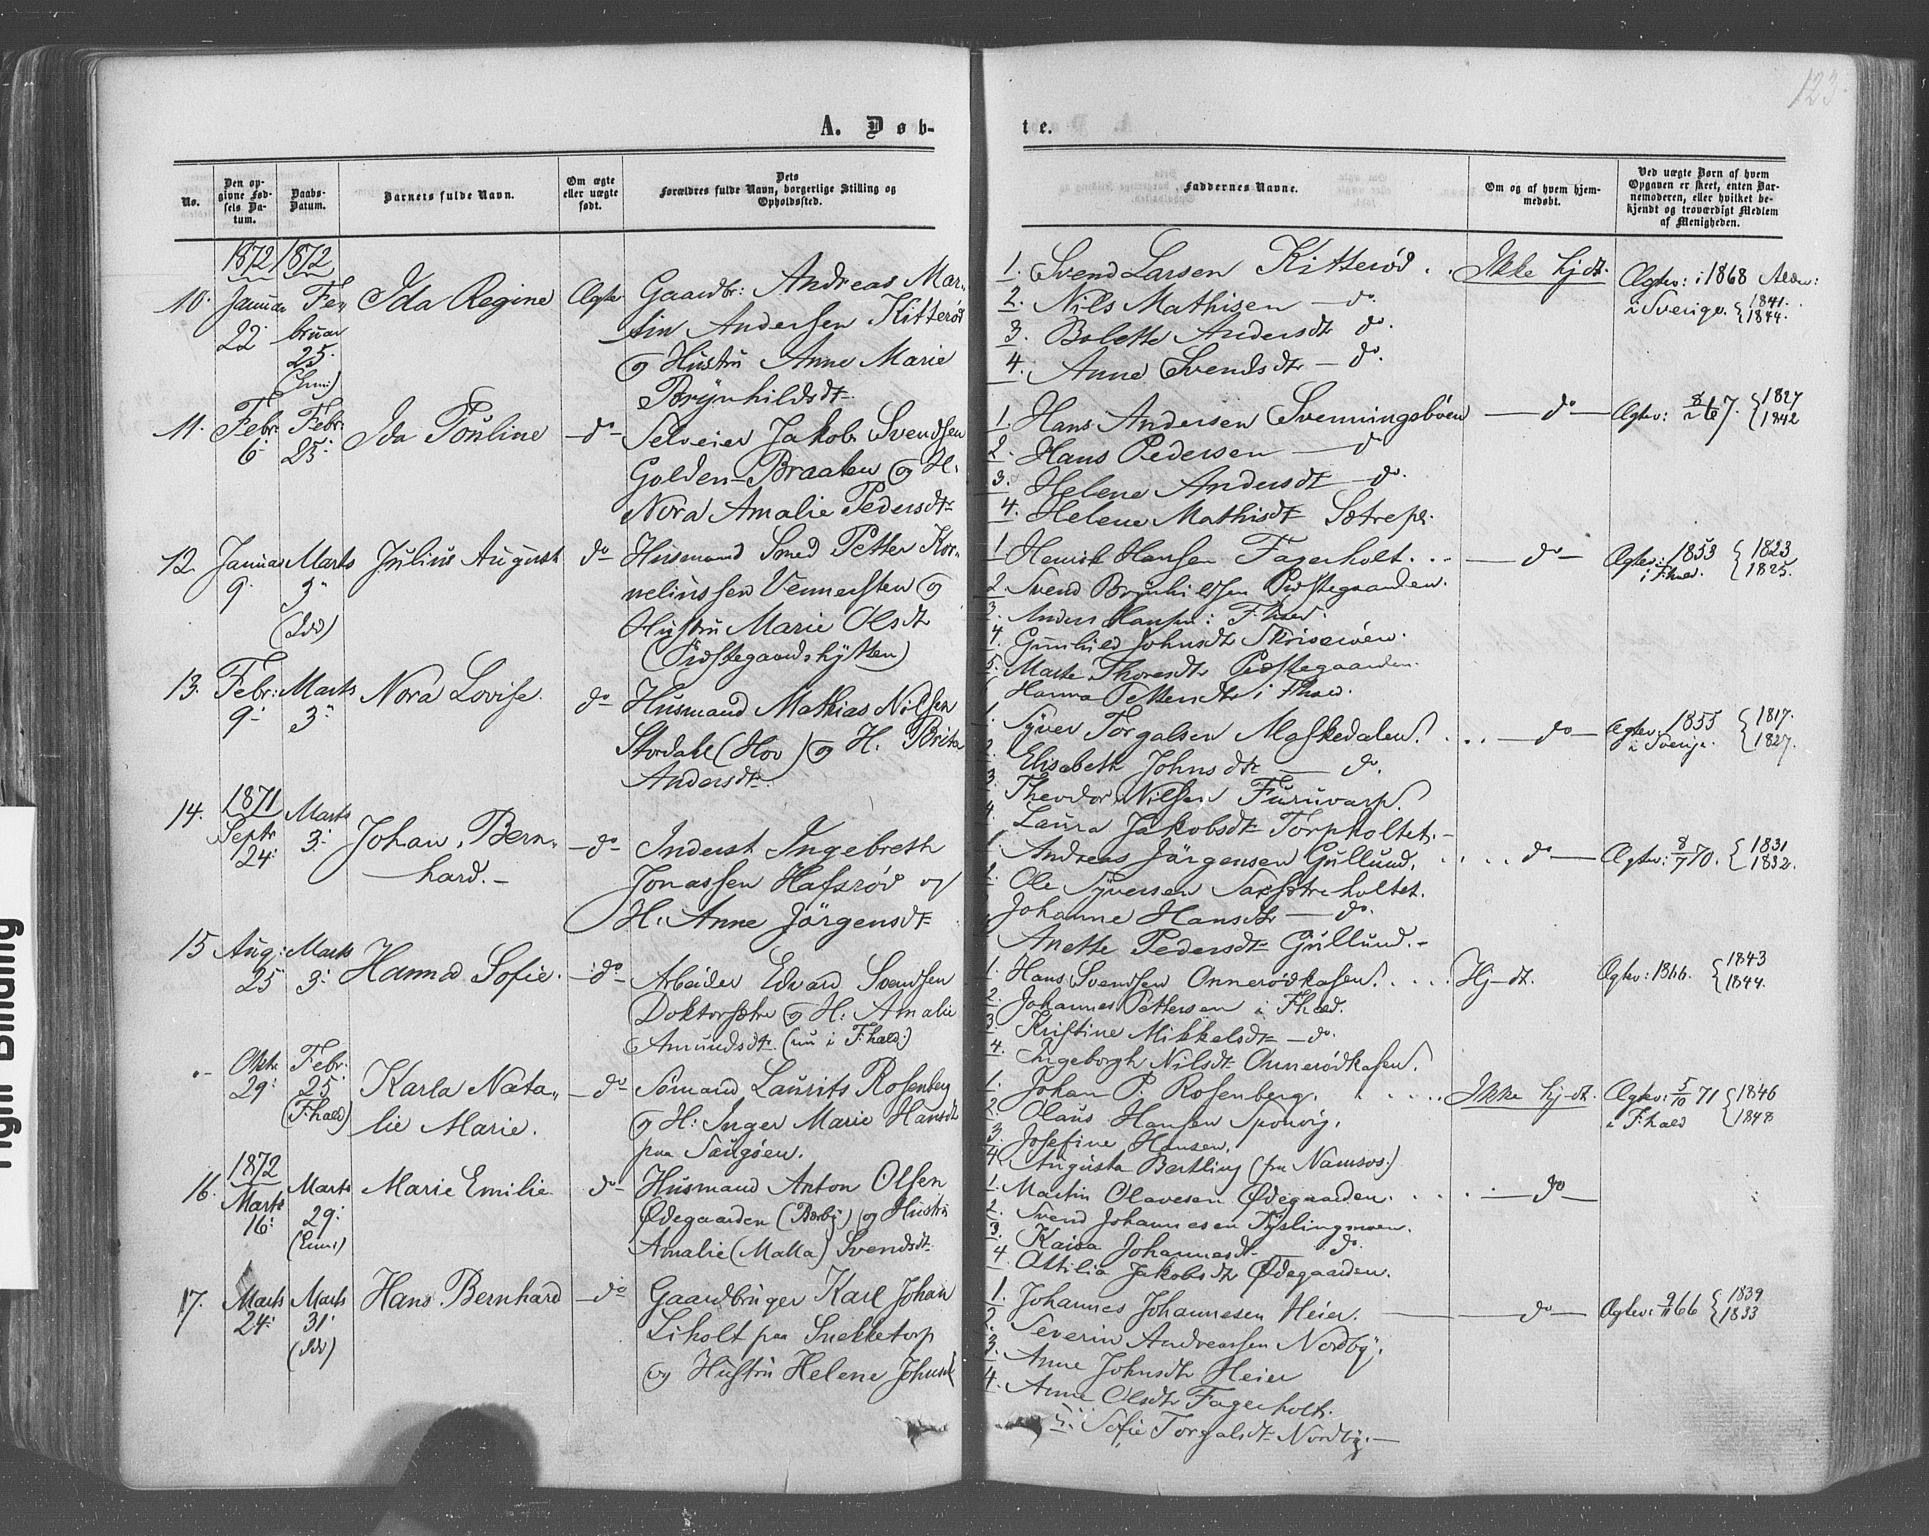 123
A. Døb-
te.
No.
Den op-
givne Fød-
sels Da-
tum.
Daabs-
Datum.
Barnets fulde Navn.
Om ægte
eller uægte
født.
Dets
Forældres fulde Navn, borgerlige Stilling og
Opholdssted.
Faddernes Navne.
Om og af hvem hjem-
medøbt.
Ved uægte Børn af hvem
Opgaven er skeet, enten Bar-
nemoderen, eller hvilket be-
kjendt og troværdigt Medlem
af Menigheden.
1872 1872
10. Januar 22
Fe-
bruar
25.
Ida Regine
Ægte
Gaardbr: Andreas Mar-
tin Andersen Kitterød
og Hustru Anne Marie
Brynhildsdt.
1. Svend Larsen Kitterød
2. Nils Mathisen do.
3. Bolette Andersdt do.
4. Anne Svendsdt do.
Ikke hj-dt.
Ægtev: i 1868
i Sverige. {1841. 1844.
11. Febr. 6
Febr. 25.
Ida Pouline
do
Selveier Jakob Svendsen
Golden-Braaten og H.
Nora Amalie Pedersdt
1. Hans Andersen Svenningsbøen
2. Hans Pedersen do
3. Helene Andersdt do.
4. Helene Mathisdt Sætrepl.
do
Ægtev: 8/2 67. {1827 1842
12. Januar 9.
Marts 3
Julius August
do
Husmand Smed Petter Kor-
neliussen Vennersten og
Hustru Marie Olsdt
(Pidstegaardshytten)
1 Henrik Hansen Fagerholt.
2 Svend Brynhildsen Pidstegaarden.
3. Anders Hansen i F:hald.
4. Gunhild Johnsdt
5. Marte Thoresdt Pidstegaarden.
Hanna Pettersdt i F:hald.
do
Ægtev: 1853
i F:hald. {1823 1825.
13. Febr: 9
Marts 3
Nora Lovise.
do
Husmand Mathias Nilsen
Stordahl (Hov) og H. Brita
Andersdt.
1. Syver Torgalsen Maskedalen.
2. Elisabeth Johnsdt do.
3. Theodor Nilsen Furuvarp.
4. Laura Jakobsdt Torpholtet.
do
Ægtev: 1855
i Sverige. {1817. 1827.
14. 1871
Septr 24.
Marts 3.
Johan Bern-
hard.
do
Inderst Ingebreth
Jonassen Hafsrød og
H. Anne Jörgensdt
1 Andreas Jörgensen Gullund.
2. Ole Syversen Saxsætreholtet.
Johanne Hansdt do.
Anette Pedersdt Gullund.
do
Ægtev: 8/7 70. {1831 1832.
15 Aug: 25
Marts 3.
Hanna Sofie.
do
Arbeider Edvard Svendsen
Doktorsætre og H. Amalie
Amundsdt. (nu i F:hald.)
1. Hans Svendsen Onnerødkasen.
2. Johannes Pettersen i F:hald.
3. Kristine Mikkelsdt do.
4. Ingeborgh Nilsdt Onnerødkasen.
Hj-dt.
Ægtev: 1866. {1843 1844.
Oktr. 29.
Febr. 25.
(F:hald)
Karla Nata-
lie Marie.
do
Sømand Laurits Rosenberg
og H: Inger Marie Hansdt
paa Saugøen.
1. Johan P. Rosenberg.
2. Olaus Hansen Sponvig.
3. Josefine Hansen.
4. Augusta Bertling (fra Namsos.)
Ikke hj-dt.
Ægtev: 5/10 71
i F:hald {1846 1848
16. 1872
Marts 16.
Marts 29.
Marie Emilie.
do
Husmand Anton Olsen
Ødegaarden (Berby) og Hustru
Amalie (Malla) Svendsdt
1. Martin Olavesen Ødegaarden.
2. Svend Johannesen Tyslingmoen.
3. Kaisa Johannesdt do.
4 Ottilia Jakobsdt Ødegaarden.
do
17. Marts 24.
Marts 31.
(Idd)
Hans Bernhard
do
Gaardbruger Karl Johan
Liholt paa Snekketorp
og Hustru Helene Johnsdt
1. Johannes Johannesen Heier.
2. Severin Andreassen Nordby.
3. Anne Johnsdt Heier
4. Anne Olsdt Fagerholt.
5. Sofie Torgalsdt Nordby.
do
Ægtev: 9/11 66 {1839 1833
Tight Binding